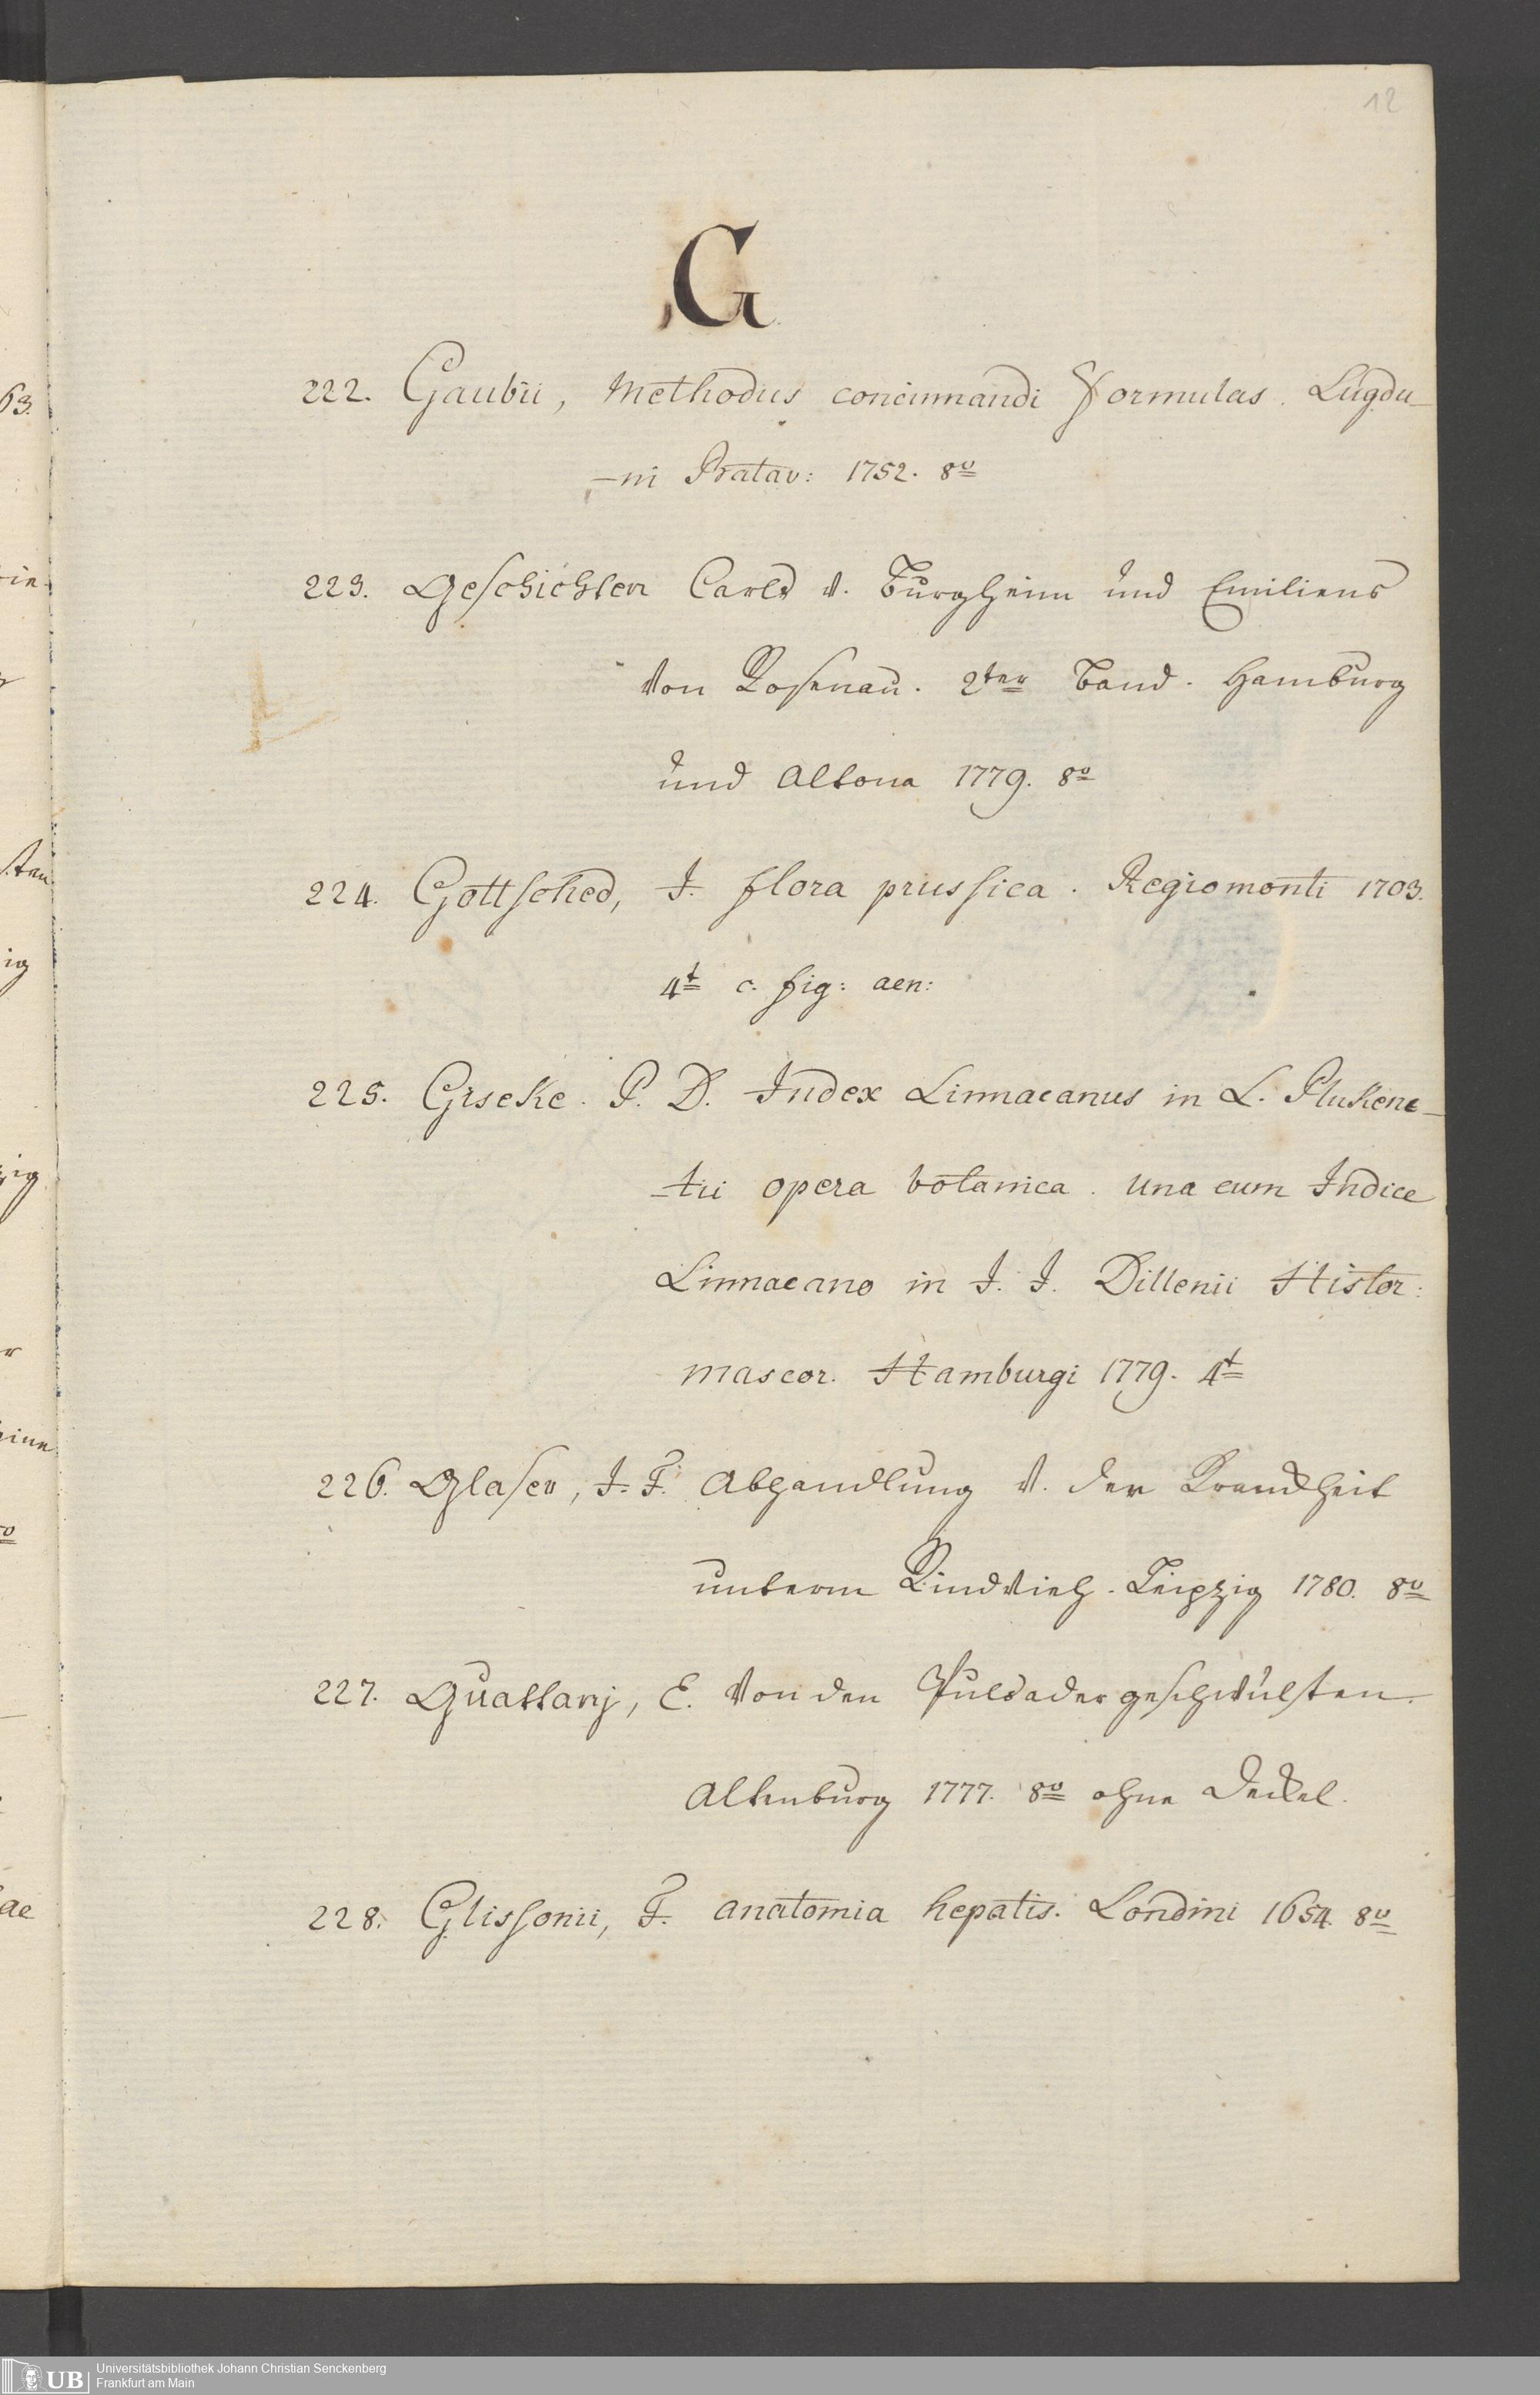 12
G
222. Gaubii, Methodus concinnandi Formulas. Lugdu-
-ni Bratav: 1752. 8º
223. Geschichten Carls v. Burgheim und Emiliens
von Rosenau. 2ter Band. Hamburg
und Altona 1779. 8º
224. Gottsched, J. flora prussica. Regiomonti 1703.
4t c. fig: aen:
225. Giseke. P. D. Index Linnaeanus in L. Plukene-
-tii opera botanica. Una cum Indice
Linnaeano in J. J. Dillenii Histor:
mascor. Hamburgi 1779. 4t
226. Glaser, J. F. Abhandlung v. der Kranckheit
unterm Rindvieh. Leipzig 1780. 8º
227. Guattanj, C. Von den Pulsadergeschwülsten.
Altenburg 1777. 8º ohne Deckel.
228. Glissonii, F. anatomia hepatis. Londini 1654. 8º
63.
ig
ae
UB
Universitätsbibliothek Johann Christian Senckenberg
Frankfurt am Main